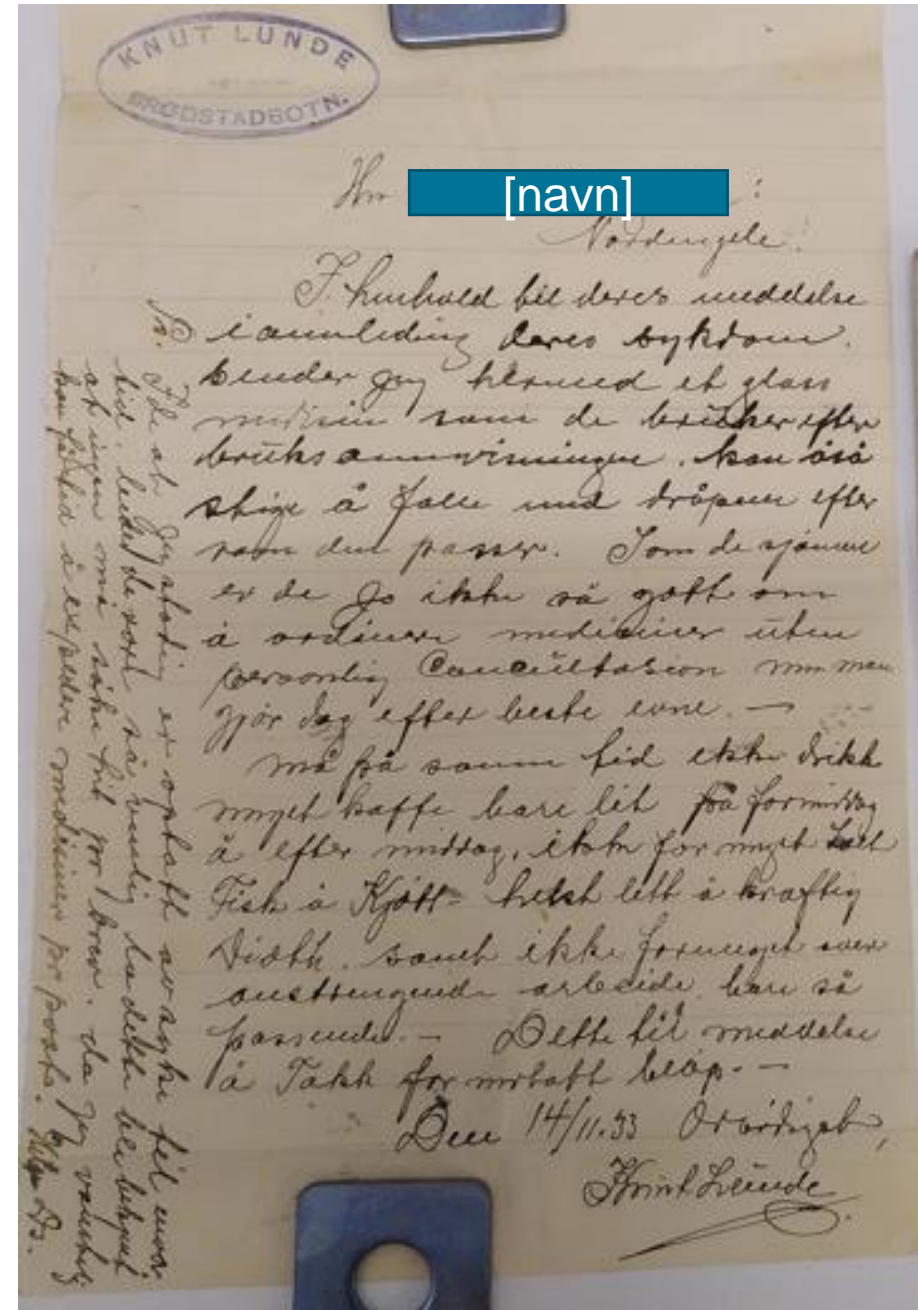 KNUT LUNDE
BRØDSTADBOTN.
Hrr [navn] :
I henhold til deres meddelse
i annleding deres sykdom.
sender jeg hermed et glass
medisin som de brüker efter
brüksannvisningen. kan åså
stige å falle med dråpene efter
som den passer. Som de sjønner
er de jo ikke så gott om
å ordinere medisiner uten
personlig Concültasion men man
gjør dag efter beste evne. —
må på samme tid ikke drikk
myget kaffe bare lit på formiddag
å efter middag, ikke for myet Salt
Fisk å Kjött - helst lett å kraftig
Diæth. samt ikke formeget over
anstrengende arbeide bare så
passende. — Dette til meddelse
å Takk for motatt beløp. —
Den 14/11.33 Ærbødigst,
Knut Lunde
Ps. I de at jeg stadig er optatt av syke til enver
tid. så venlig la dette bli bekjent
at ingen må søke hit pr brev. da jeg vanskelig
kan få tid å expedere mediciner pr post. Ds.